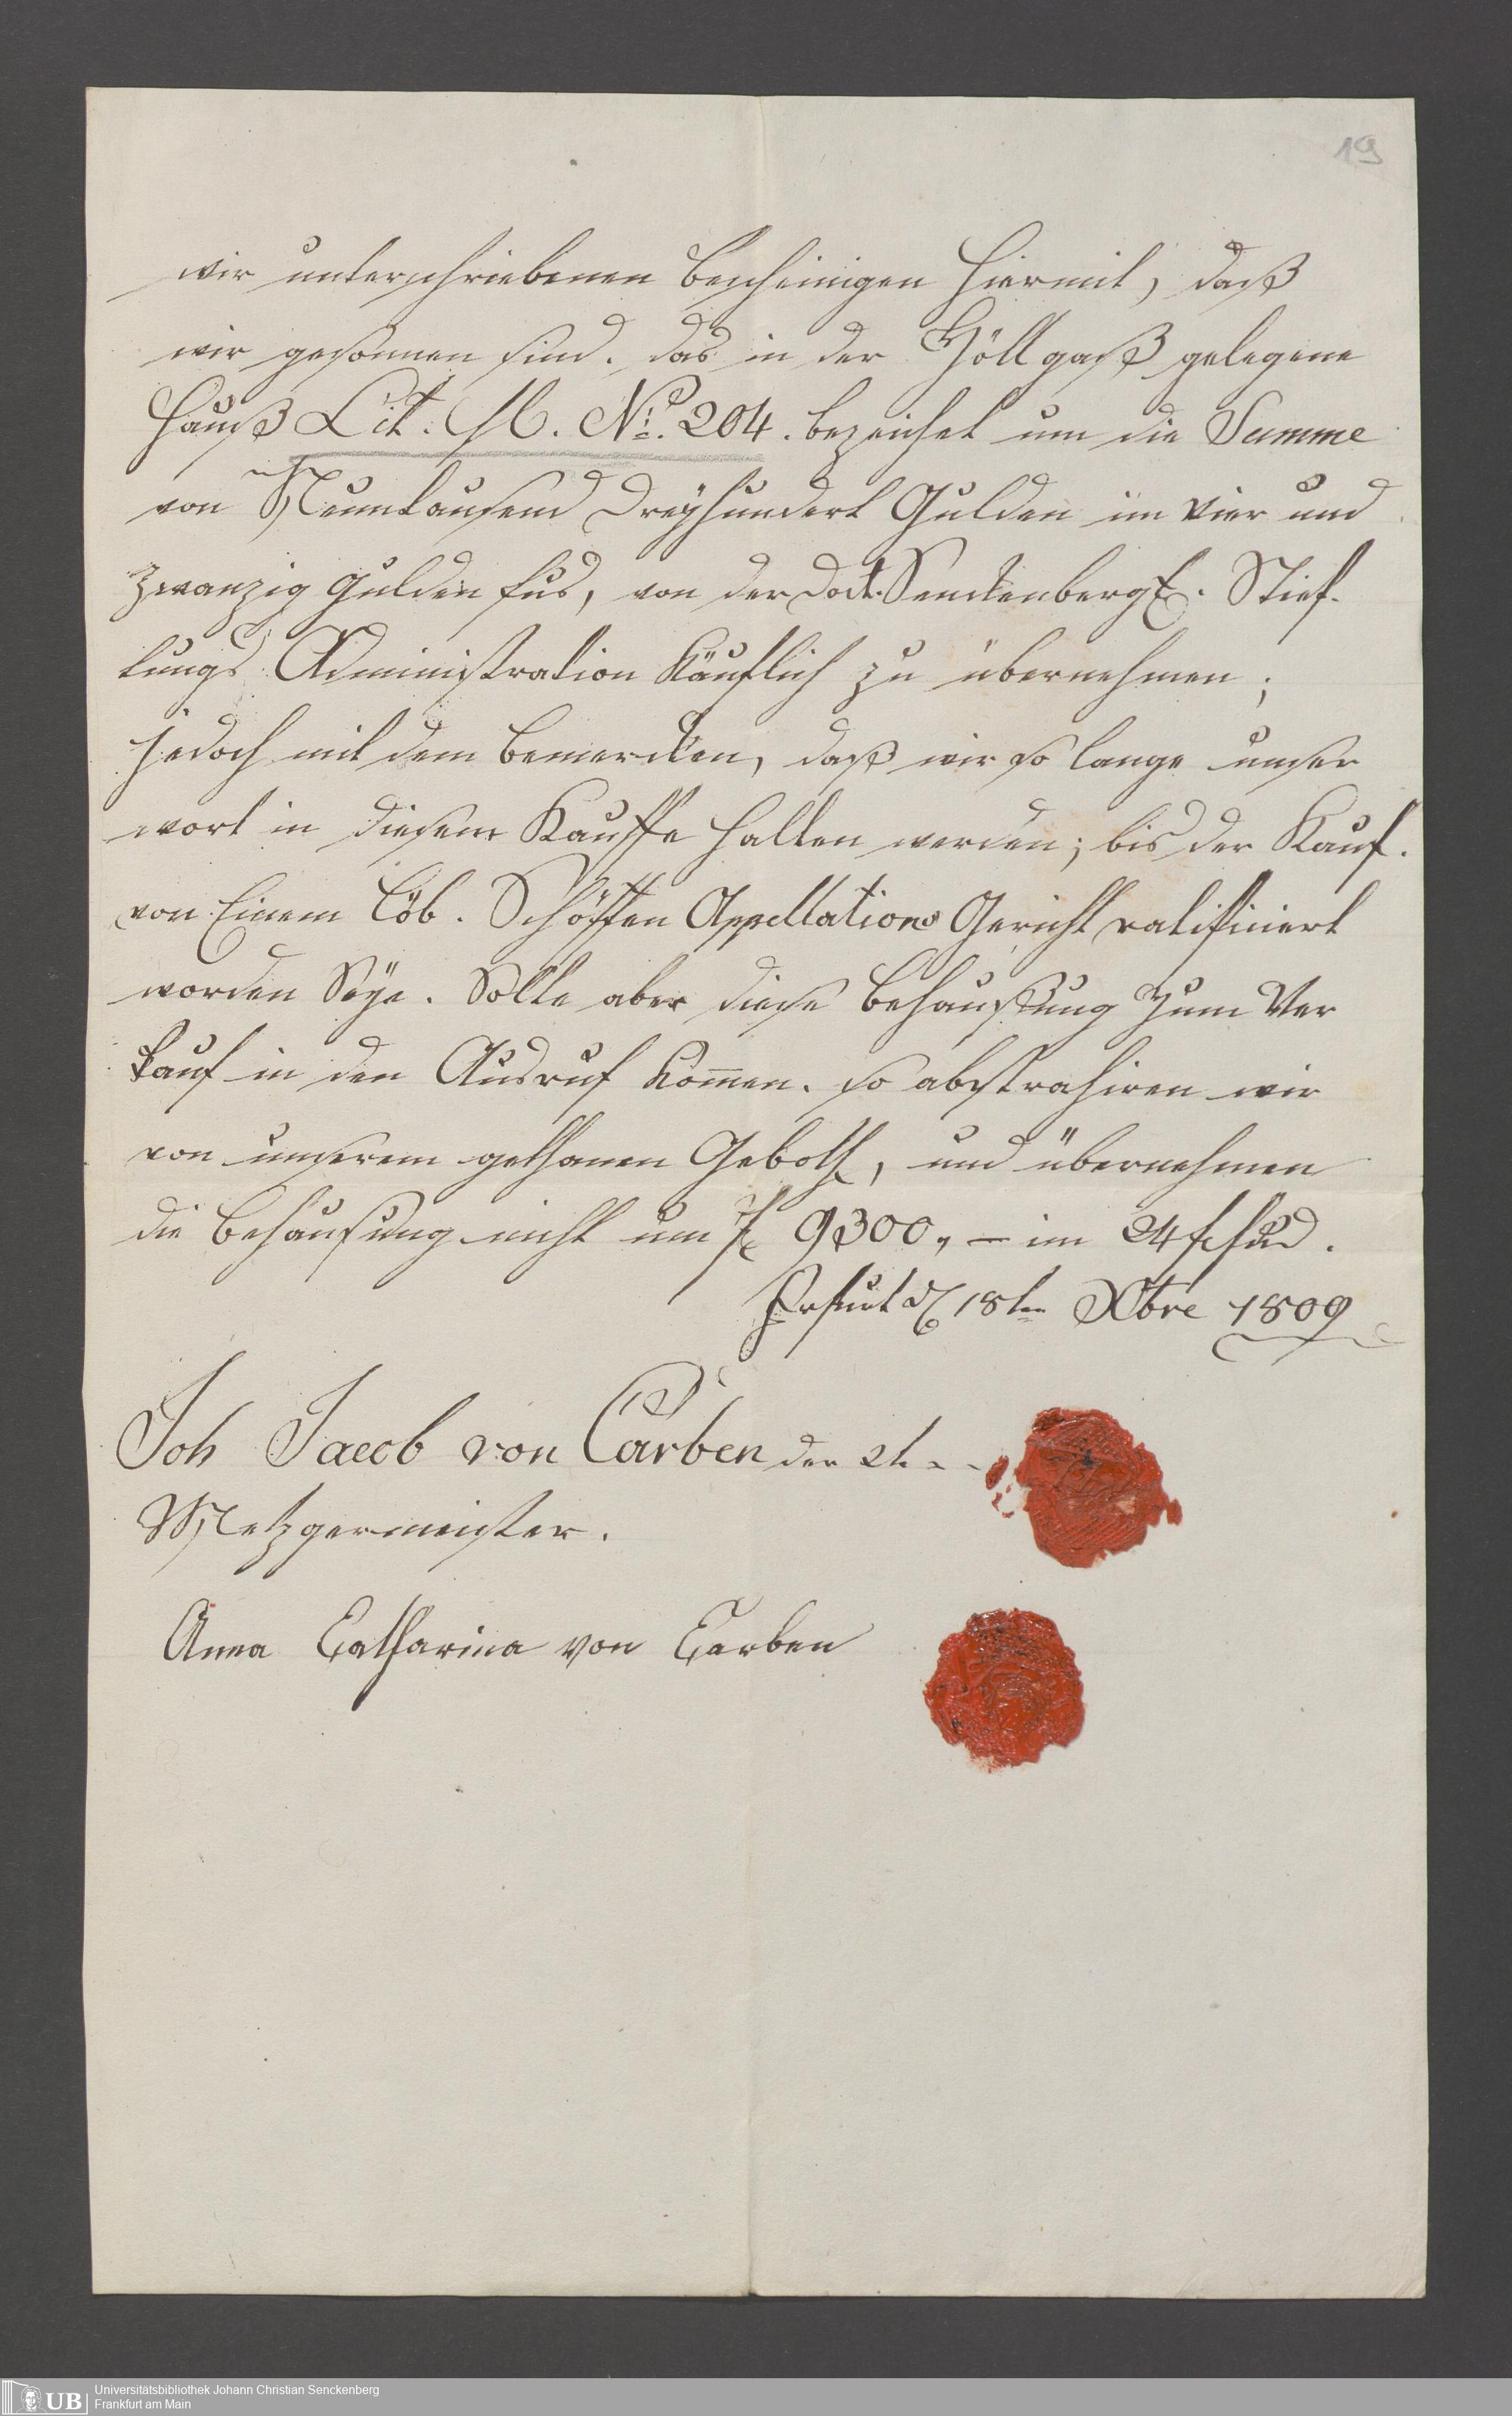 19
wir unterschriebenen bescheinigen hiermit, daß
wir gesonnen sind. das in der Höllgaß gelegene
Hauß Lit. M. No. 204. bezeichet um die Summe
von Neuntausend Dreyhundert Gulden im vier und
zwanzig Gulden fus, von der Doct. Senckenberg. Stief-
tungs Administration käuflich zu übernehmen;
jedoch mit dem bemercken, daß wir so lange unser
wort in diesem Kauffe halten werden; bis der Kauf.
von Einem Löb. Schöffen Appellations Gericht ratificiert
worden Seye. Solte aber diese behaußung zum Ver
kauf in den Ausruf kom̅en. so abstrahiren wir
von unserem gethanen Geboth, und übernehmen
die behausung nicht um f 9300,, – im 24 f fus.
18ten Xbre 1809
Joh Jacob von Carben der
Metzgermeister.
Anna Catharina von Carben
UB Universitätsbibliothek Johann Christian Senckenberg
Frankfurt am Main